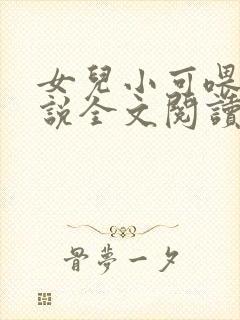 女兒小可喂
說全文閱讀
骨夢一夕